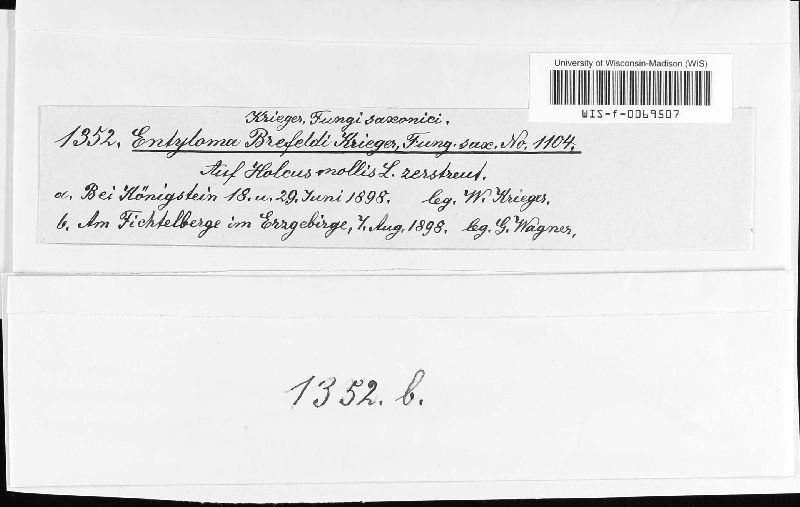 University of Wisconsin-Madison (WIS)
WIS-f-0069507
Krieger, Fungi saxonici.
1352. Entyloma Brefeldi Krieger, Fung. sax. No. 1104.
Auf Holcus mollis L. zerstreut.
a. Bei Königstein 18. u. 29. Juni 1898. leg. W. Krieger.
b. Am Fichtelberge im Erzgebirge, 7. Aug. 1898. leg. G. Wagner,
1352. b.